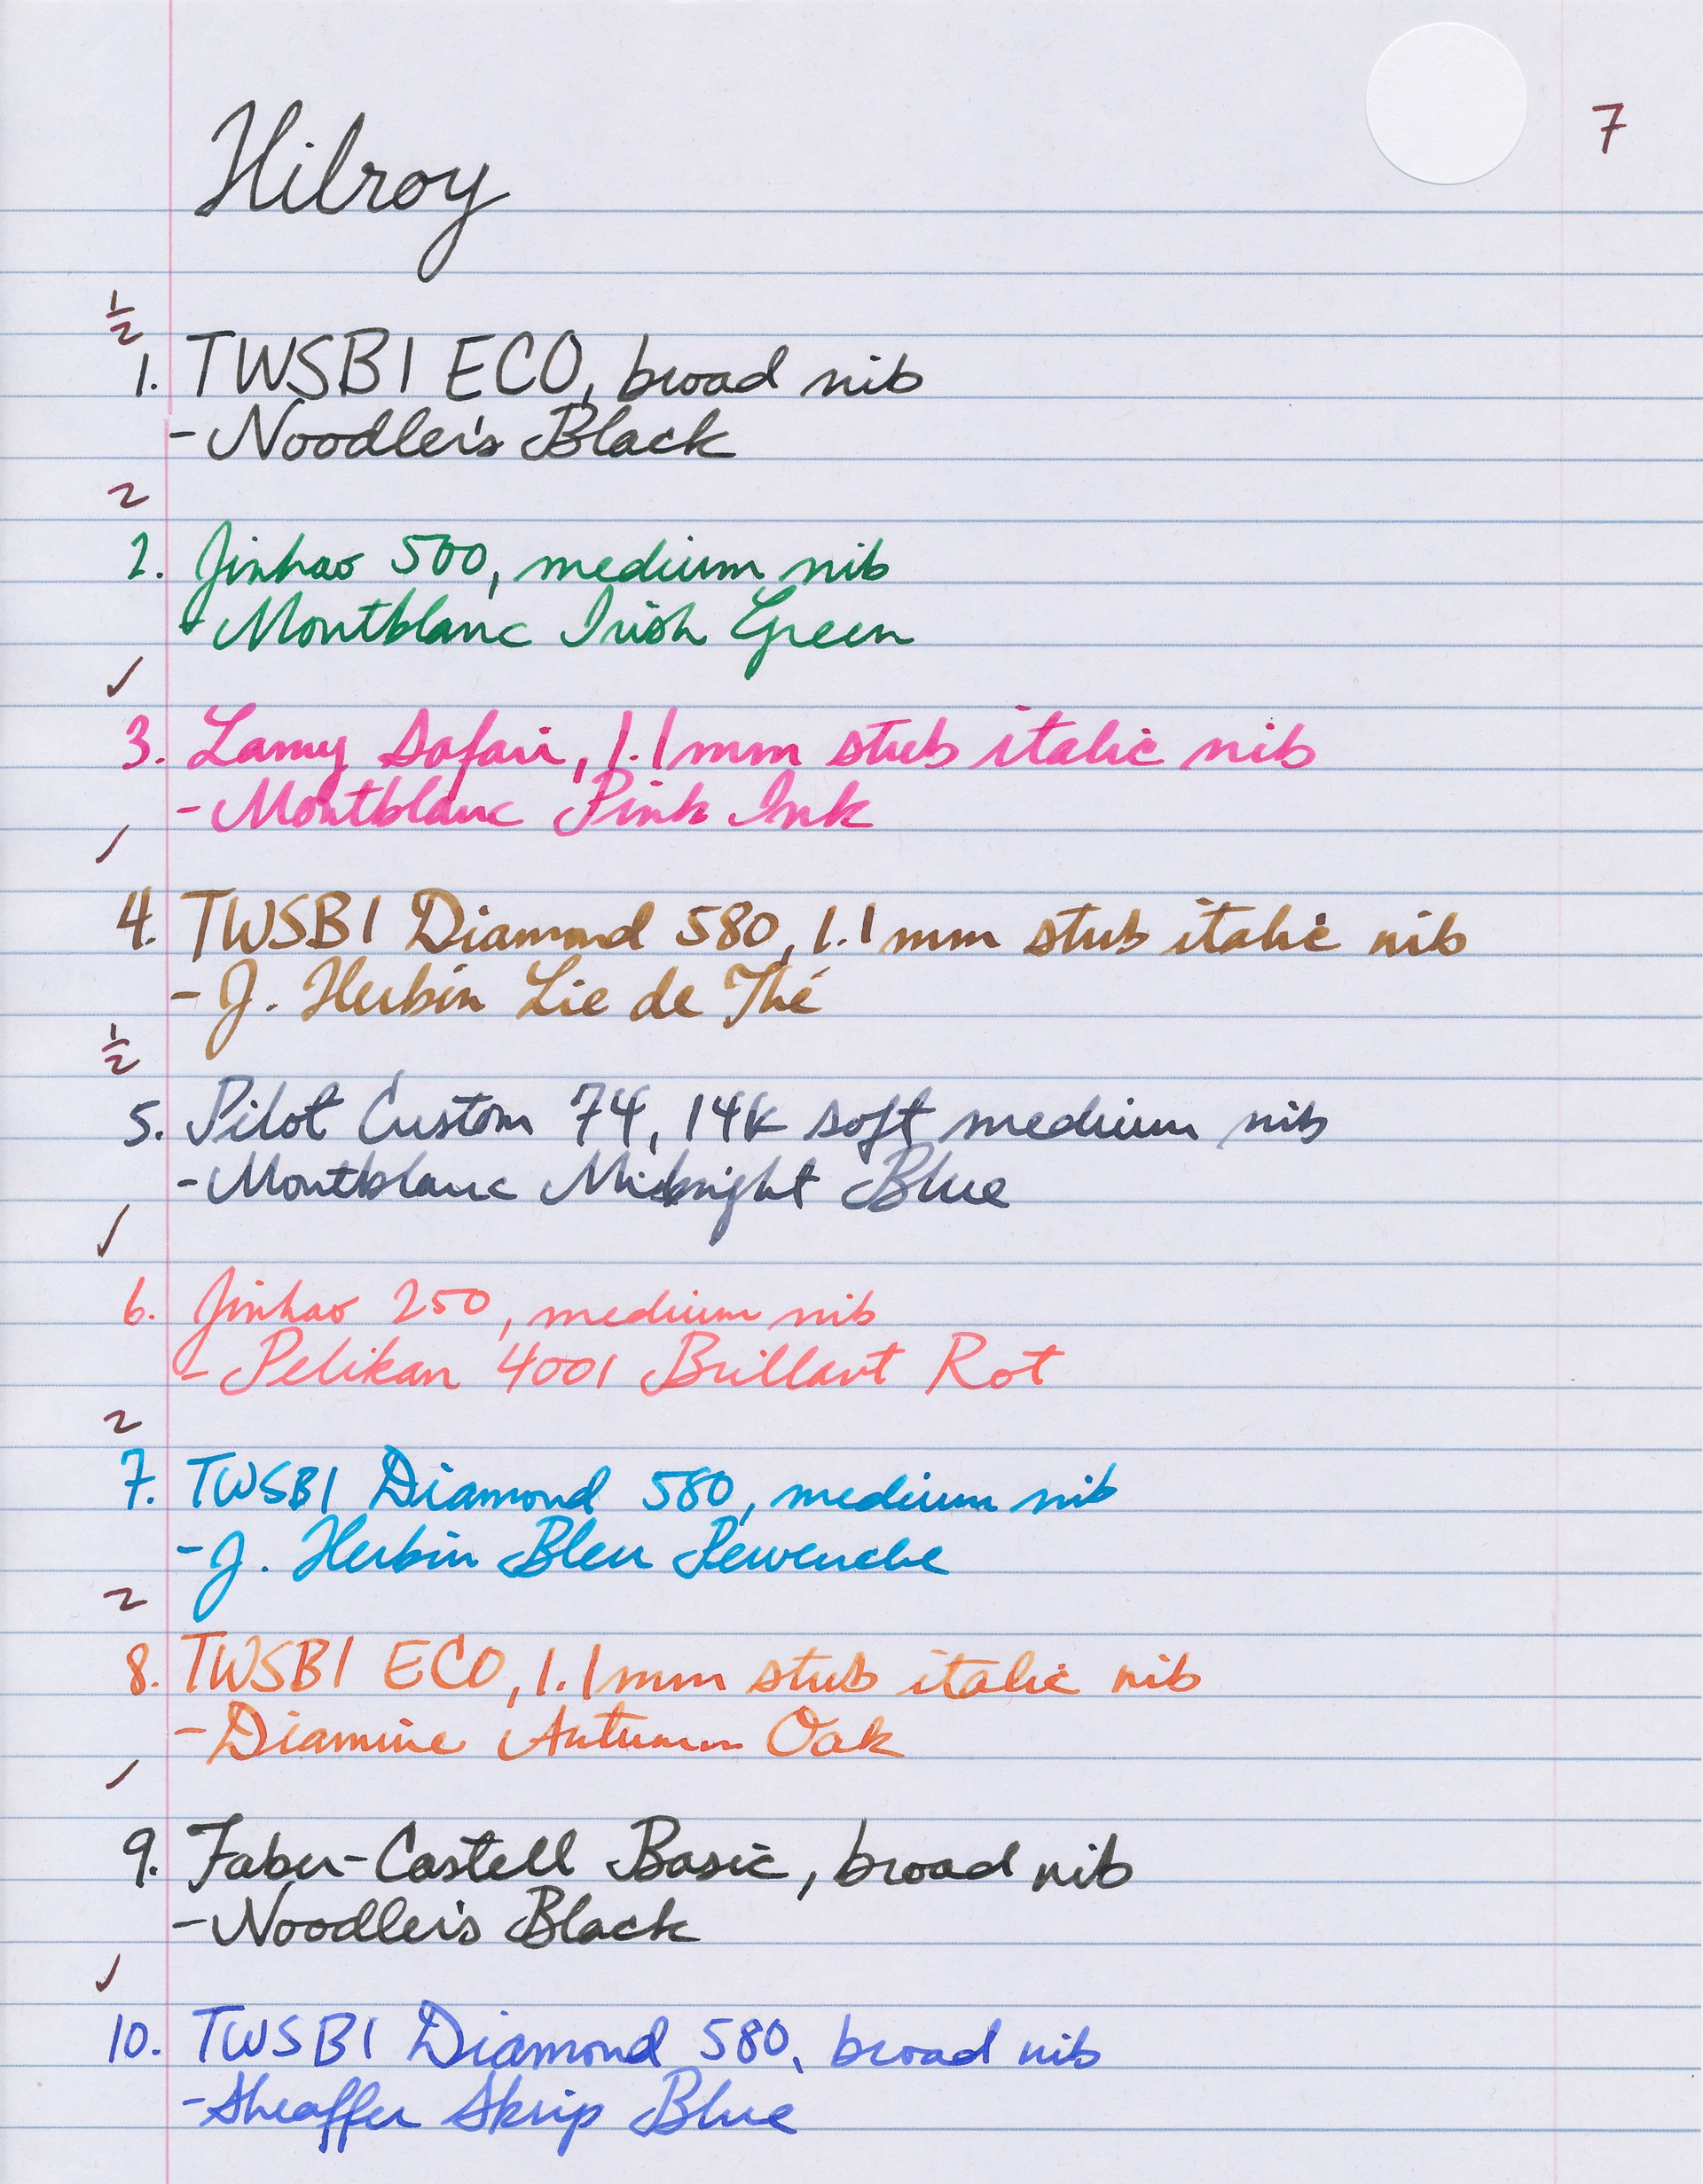 7
Hilroy
1/2
1. TWSBI ECO, broad nib
- Noodler's Black
2
2. Jinhao 500, medium nib
- Montblanc Irish Green
✓
3. Lamy Safari, 1.1mm stub italic nib
- Montblanc Pink Ink
✓
4. TWSBI Diamond 580, 1.1mm stub italic nib
- J. Herbin Lie de Thé
1/2
5. Pilot Custom 74, 14K soft medium nib
- Montblanc Midnight Blue
✓
6. Jinhao 250, medium nib
- Pelikan 4001 Brillant Rot
2
7. TWSBI Diamond 580, medium nib
- J. Herbin Bleu Pervenche
2
8. TWSBI ECO, 1.1mm stub italic nib
- Diamine Autumn Oak
✓
9. Faber-Castell Basic, broad nib
- Noodler's Black
✓
10. TWSBI Diamond 580, broad nib
- Sheaffer Skrip Blue